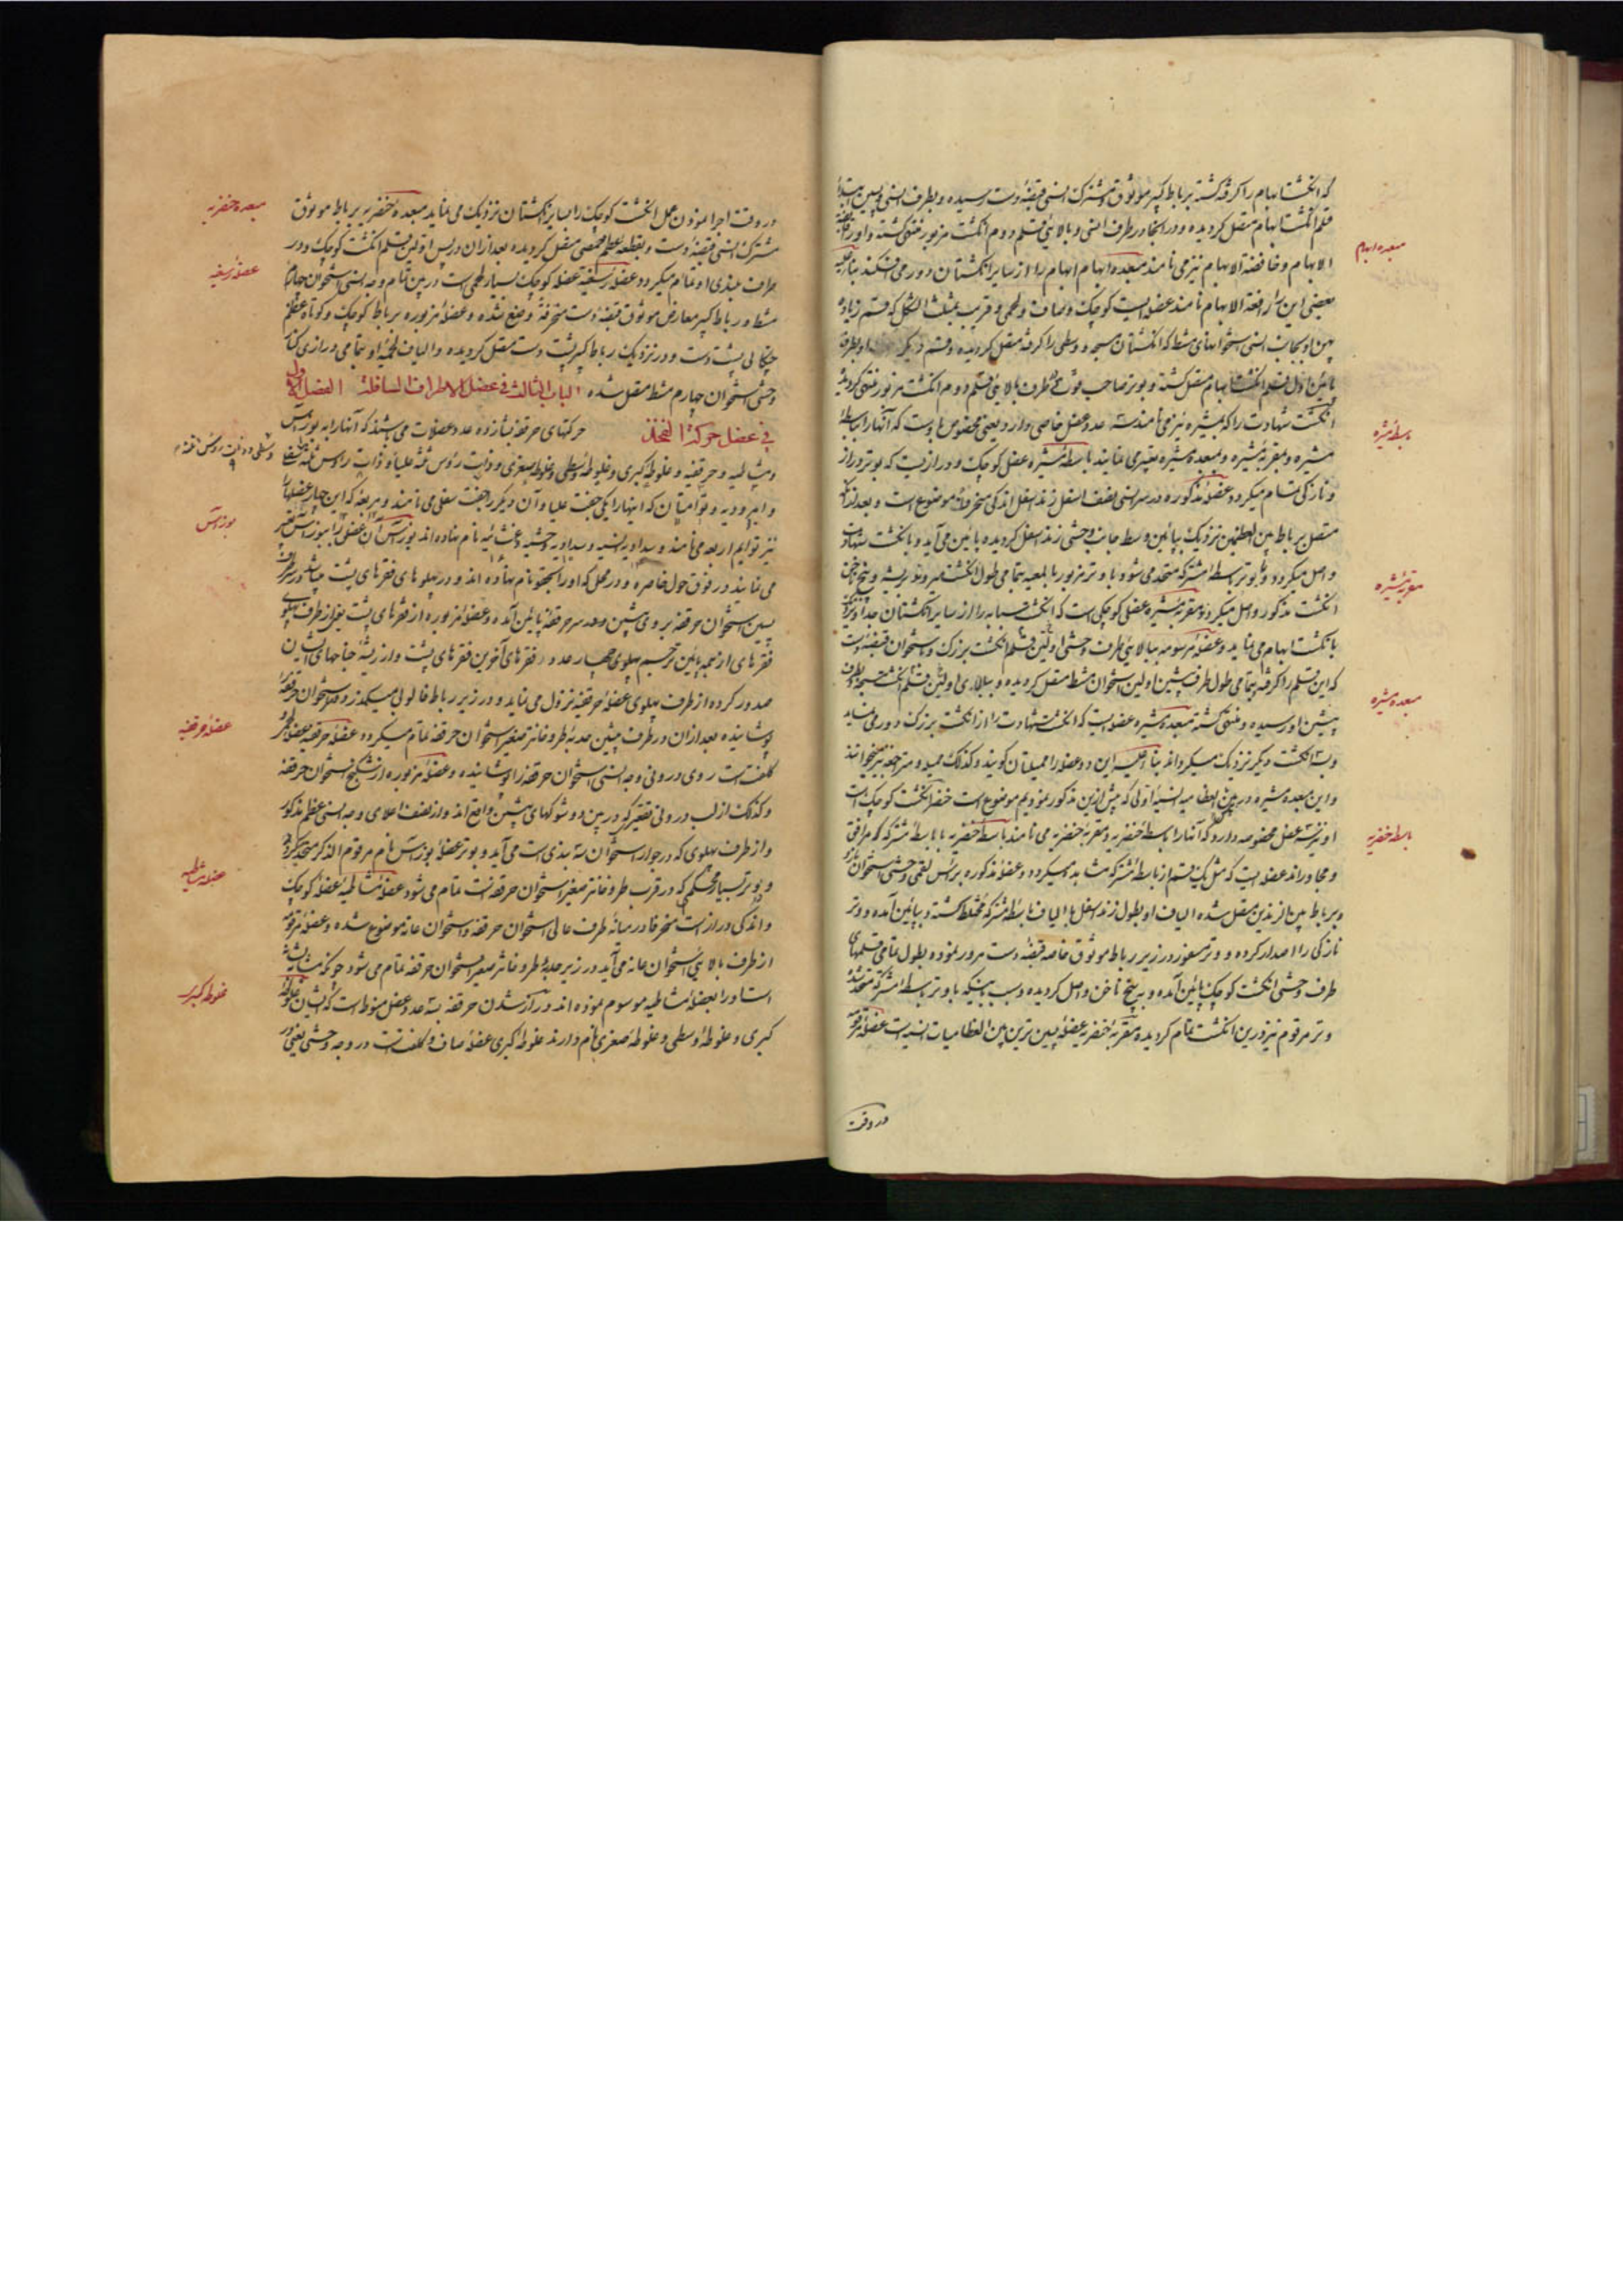 که انگشت ابهام را گرفته گشته برباط کبیر موثوق مشترک انسی قبضهٔ دست رسیده و بطرف انسی پسین
قلم انگشت ابهام متصل گردیده و در آنجا در طرف انسی و بالائی قلم دوم انگشت مزبور منتهی گشته و او را
الابهام و خافضة الابهام نیز می نامند مبعده ابهام ابهام را از سایر انگشتان دور می افکند
مبعده ابهام
بعضی این را رافعة الابهام نامند عضله ایست کوچک و صاف و لحمی و قریب بمثلث الشکل که قسم زیاده
پهن او بجانب انسی استخوانهای مشط که انگشتان مسبحه و وسطی را گرفته متصل گردیده و قسم دیگر او بطرف
پائین اول قلم انگشت ابهام متصل گشته و بوتر صاحب قوت طرف بالائی قلم دوم انگشت مزبور منتهی گردیده
انگشت شهادت را که مشیره نیز می نامند سه عدد عضل خاصی دارد یعنی مخصوص باوست که آنها را باسطهٔ
باسطهٔ مشیره
مشیره و مقربهٔ مشیره و مبعدهٔ مشیره تعبیر می نمایند باسطهٔ مشیره عضل کوچک و درازیست که بوتر دراز
و نازکی تمام میگردد عضلهٔ مذکوره در سر انسی نصف اسفل زند اسفل اندکی منحرفاً موضوع است و بعد از آنکه
متصل برباط بین العظمین نزدیک بپائین وسط جانب وحشی زند اسفل گردیده پائین می آید و بانگشت شهادت
واصل میگردد و بوتر باسطهٔ مشترکه متحد می شود با وتر مزبور بالمعیه بتمامی طول انگشت میرود و به بیخ ناخن
انگشت مذکور واصل میگردد مقربهٔ مشیره عضل کوچکی است که انگشت سبابه را از سایر انگشتان جدا و نزدیک
مقربهٔ مشیره
بانگشت ابهام می نماید و عضلهٔ مرسومه ببالائی طرف وحشی اولین قلم انگشت بزرگ و استخوان قبضهٔ دست
که این قلم را گرفته بتمامی طول طرف پیشین اولین استخوان مشط متصل گردیده و ببالای اولین قلم انگشت مسبحه و بطرف
پیشین او رسیده و منتهی گشته مبعدهٔ مشیره عضله ایست که انگشت شهادت را از انگشت بزرگ دور می نماید
مبعدهٔ مشیره
و به انگشت دیگر نزدیک میگرداند
و این مبعده مشیره در بین العظامیه انسیهٔ اولی که پیش ازین مذکور نمودیم موضوع است خنصر انگشت کوچک است
او نیز سه عضل مخصوصه دارد که آنها را باسطهٔ خنصریه و مقربهٔ خنصریه می نامند باسطهٔ خنصریه با باسطهٔ مشترکه مرافق
باسطهٔ خنصریه
و مجاور اند عضله ایست که مثل یک قسم از باسطهٔ مشترکه مشاهده میگردد و عضلهٔ مذکوره برأس لقمی وحشی استخوان
و برباط بین الزندین متصل شده الیاف او بطول زند اسفل با الیاف باسطهٔ مشترکه مختلط گشته و بپائین آمده و وتر
نازکی را اصدار کرده و وتر مسفور در زیر رباط موثوق خاصه قبضهٔ دست مرور نموده بطول تمامی قلمهای
طرف وحشی انگشت کوچک پائین آمده و به بیخ ناخن واصل گردیده و سبب اینکه با وتر باسطهٔ مشترکه متحد شده
وتر مرقوم نیز درین انگشت تمام گردیده مقربهٔ خنصریه عضلهٔ پسین ترین بین العظامیات انسیه است عضلهٔ مرقومه
در وقت
در وقت اجرا نمودن عمل انگشت کوچک را بسایر انگشتان نزدیک می نماید مبعدهٔ خنصریه برباط موثوق
مبعده خنصریه
مشترک انسی قبضهٔ دست و بقطعه عظم حمصی متصل گردیده بعد از آن در پس اولین قلم انگشت کوچک و در
اطراف بلندی او تمام میگردد عضلهٔ رسغیه عضلهٔ کوچک بسیار لحمی است در بین تمام وجه انسی استخوان چهارم
عضلهٔ رسغیه
مشط و رباط کبیر معارض موثوق قبضهٔ دست منحرفةً وضع شده و عضلهٔ مزبوره برباط کوچک و کوتاه عظم
چنگالی پشت دست و در نزدیک رباط کبیر پشت دست متصل گردیده و الیاف لحمیهٔ او بتمامی درازی کنار
وحشی استخوان چهارم مشط متصل شده الباب الثالث فی عضل الاطراف السافلة الفصل الاول
فی عضل حرکة الفخذ حرکتهای حرقفه شانزده عدد عضلات می باشند که آنها را به بوزاس
و مشاطیه و حرقفیه و غلوطهٔ کبری و غلوطهٔ وسطی و غلوطهٔ صغری و ذات رؤس ثلثه علیا و ذات رؤس ثلثه سفلی
و امیرودیه و توأمیتان که اینها را یکی جفت علیا و آن دیگر را جفت سفلی می نامند و مربعه که این چهار عضلها
نیز توایم اربعه می نامند و سدادیه انسیه و سدادیه وحشیه و غشائیه نام نهاده اند بوزاس آن عضلی را بوزاس تعبیر
بوزاس
می نمایند در فوق حول خاصره و در محل که او را کشحه نام نهاده اند و در پهلوهای فقرهای پشت
پسین استخوان حرقفه بروی پیشین و بعد سر حرقفه پائین آمده و عضلهٔ مزبوره از فقرهای پشت یعنی از طرف پهلوی
فقرهای از همه پائین تر جسم پهلوی چهار عدد فقرهای آخرین فقرهای پشت و از ریشهٔ جناحهای ایشان
صدور کرده از طرف پهلوی عضلهٔ حرقفیه نزول می نماید و در زیر رباط فالوپی میگذرد و
پوشانیده بعد از آن در طرف پیشین حدبهٔ طروفانتر صغیر استخوان حرقفه تمام میگردد عضلهٔ حرقفیه عضله
عضلهٔ حرقفیه
کلفت است روی درونی وجه انسی استخوان حرقفه را پوشانیده و عضلهٔ مزبوره از شکنج استخوان حرقفه
و کذلک از لب درونی تقعیر که در بین دو شوکهای پیشین واقع اند و از نصف اعلای وجه انسی عظم مذکور
و از طرف پهلوی که در جوار استخوان سه بندی است می آید و بوتر عضلهٔ بوزاس نام مرقوم الذکر متحد گردیده
و بوتر بسیار محکمی که در قرب طروفانتر صغیر استخوان حرقفه است تمام می شود عضلهٔ مشاطیه عضلهٔ کوچک
عضلهٔ مشاطیه
و اندکی دراز است منحرفا در میانهٔ طرف عالی استخوان حرقفه و استخوان عانه موضوع شده و عضلهٔ مرقومه
از طرف بالائی استخوان عانه می آید در زیر حدبهٔ طروفانتر صغیر استخوان حرقفه تمام می شود چونکه مشابه
است او را بعضلهٔ مشاطیه موسوم نموده اند دراز شدن حرقفه به سه عدد عضل منوط است که ایشان غلوطهٔ
کبری و غلوطهٔ وسطی و غلوطهٔ صغری نام دارند غلوطهٔ کبری عضلهٔ صاف و کلفت است در وجه وحشی یعنی در
غلوطهٔ کبری